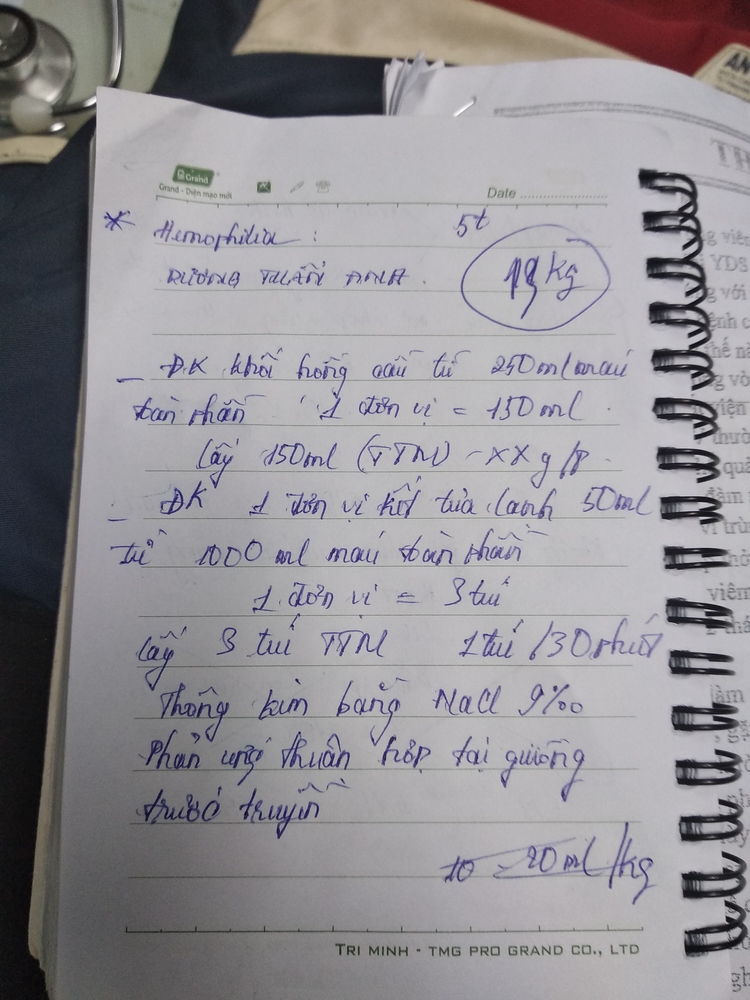 Grand
Grand - Diện mạo mới
Date
* Hemophilia : 5t
DƯƠNG TUẤN ANH. kg
- ĐK khối hồng cầu từ 250ml máu
toàn phần 1 đơn vị = 150ml.
Lấy 150ml (TTM) - XX g/p.
- ĐK 1 đơn vị kết tủa lạnh 50ml
từ 1000 ml máu toàn phần
1 đơn vị = 3 túi
Lấy 3 túi TTM 1 túi /30 phút
Thông kim bằng NaCl 9‰
Phản ứng thuận hợp tại giường
trước truyền
10 - 20 ml /kg
TRI MINH - TMG PRO GRAND CO., LTD
YDS
viêm